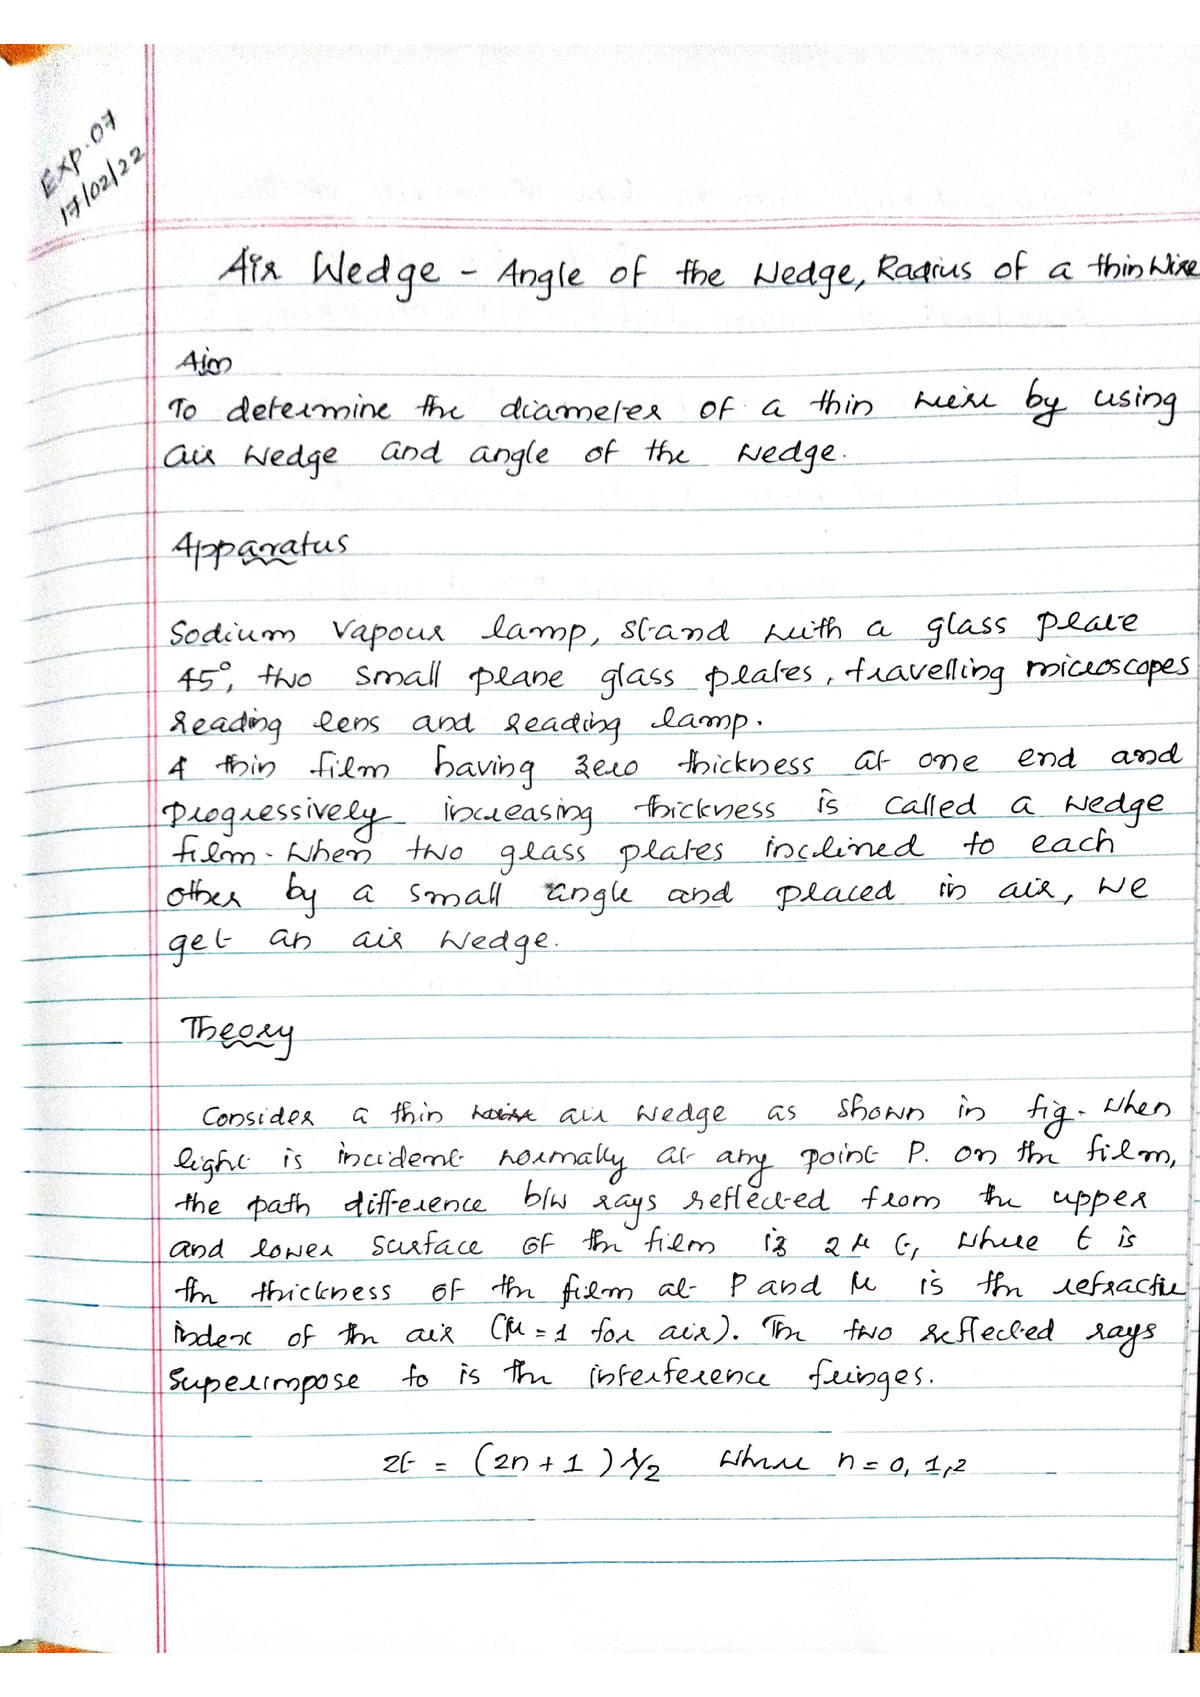 Exp. 07
17/02/22
Air Wedge - Angle of the Wedge, Radius of a thin Wire
Aim
To determine the diameter of a thin wire by using
air wedge and angle of the wedge.
Apparatus
Sodium Vapour lamp, stand with a glass plate
45°, two small plane glass plates, travelling microscopes
reading lens and reading lamp.
A thin film having zero thickness at one end and
progressively increasing thickness is called a wedge
film. When two glass plates inclined to each
other by a small angle and placed in air, we
get an air wedge.
Theory
Consider a thin air wedge as shown in fig. When
light is incident normally at any point P. on the film,
the path difference b/w rays reflected from the upper
and lower surface of the film is 2 μ t, where t is
the thickness of the film at P and μ is the refractive
index of the air (μ = 1 for air). The two reflected rays
Superimpose to is the interference fringes.
2t = (2n + 1) λ/2 where n = 0, 1, 2